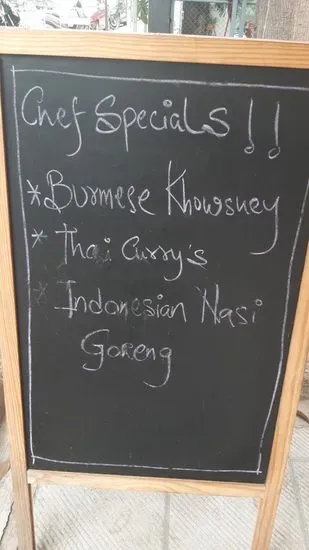 Chef Specials !!
* Burmese Khowsuey
* Thai Curry's
* Indonesian Nasi
Goreng